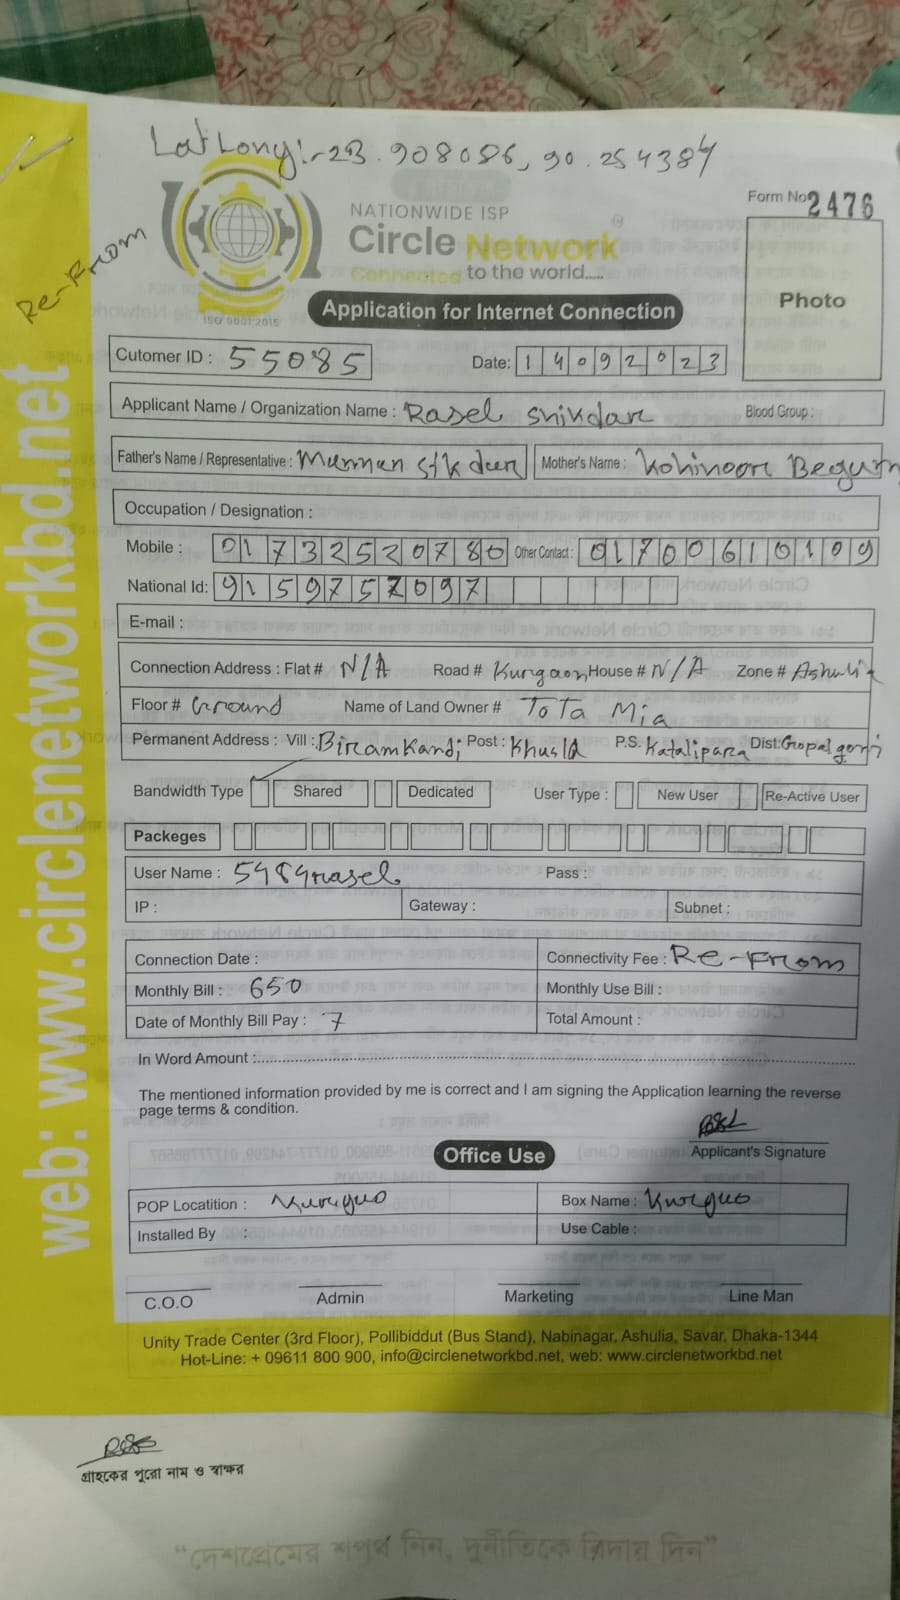 Lat Long:-23.908086, 90.254384
Re-From
Form No 2476
NATIONWIDE ISP
Circle Network
Connected to the world.....
ISO 9001:2015
Photo
Application for Internet Connection
Cutomer ID : 55085 Date: 14092023
Applicant Name / Organization Name : Rasel Shikdar Blood Group :
Father's Name / Representative : Mannan Sikder Mother's Name : Kohinoor Begum
Occupation / Designation :
Mobile : 01732520780 Other Contact : 01700610109
National Id: 9159757097
E-mail :
Connection Address : Flat # N/A Road # Kurgaon House # N/A Zone # Ashulia
Floor # Ground Name of Land Owner # ToTa Mia
Permanent Address : Vill : Biramkandi Post : Khusla P.S. Katalipara Dist: Gopalgonj
Bandwidth Type Shared Dedicated User Type : New User Re-Active User
Packeges
User Name : 5484rasel Pass :
IP : Gateway : Subnet :
Connection Date : Connectivity Fee : Re-From
Monthly Bill : 650 Monthly Use Bill :
Date of Monthly Bill Pay : 7 Total Amount :
In Word Amount :
The mentioned information provided by me is correct and I am signing the Application learning the reverse
page terms & condition.
Applicant's Signature
Office Use
POP Locatition : Kurguo Box Name : Kurguo
Installed By : Use Cable :
C.O.O Admin Marketing Line Man
Unity Trade Center (3rd Floor), Pollibiddut (Bus Stand), Nabinagar, Ashulia, Savar, Dhaka-1344
Hot-Line: + 09611 800 900, info@circlenetworkbd.net, web: www.circlenetworkbd.net
web: www.circlenetworkbd.net
গ্রাহকের পুরো নাম ও স্বাক্ষর
“দেশপ্রেমের শপথ নিন, দুর্নীতিকে বিদায় দিন”